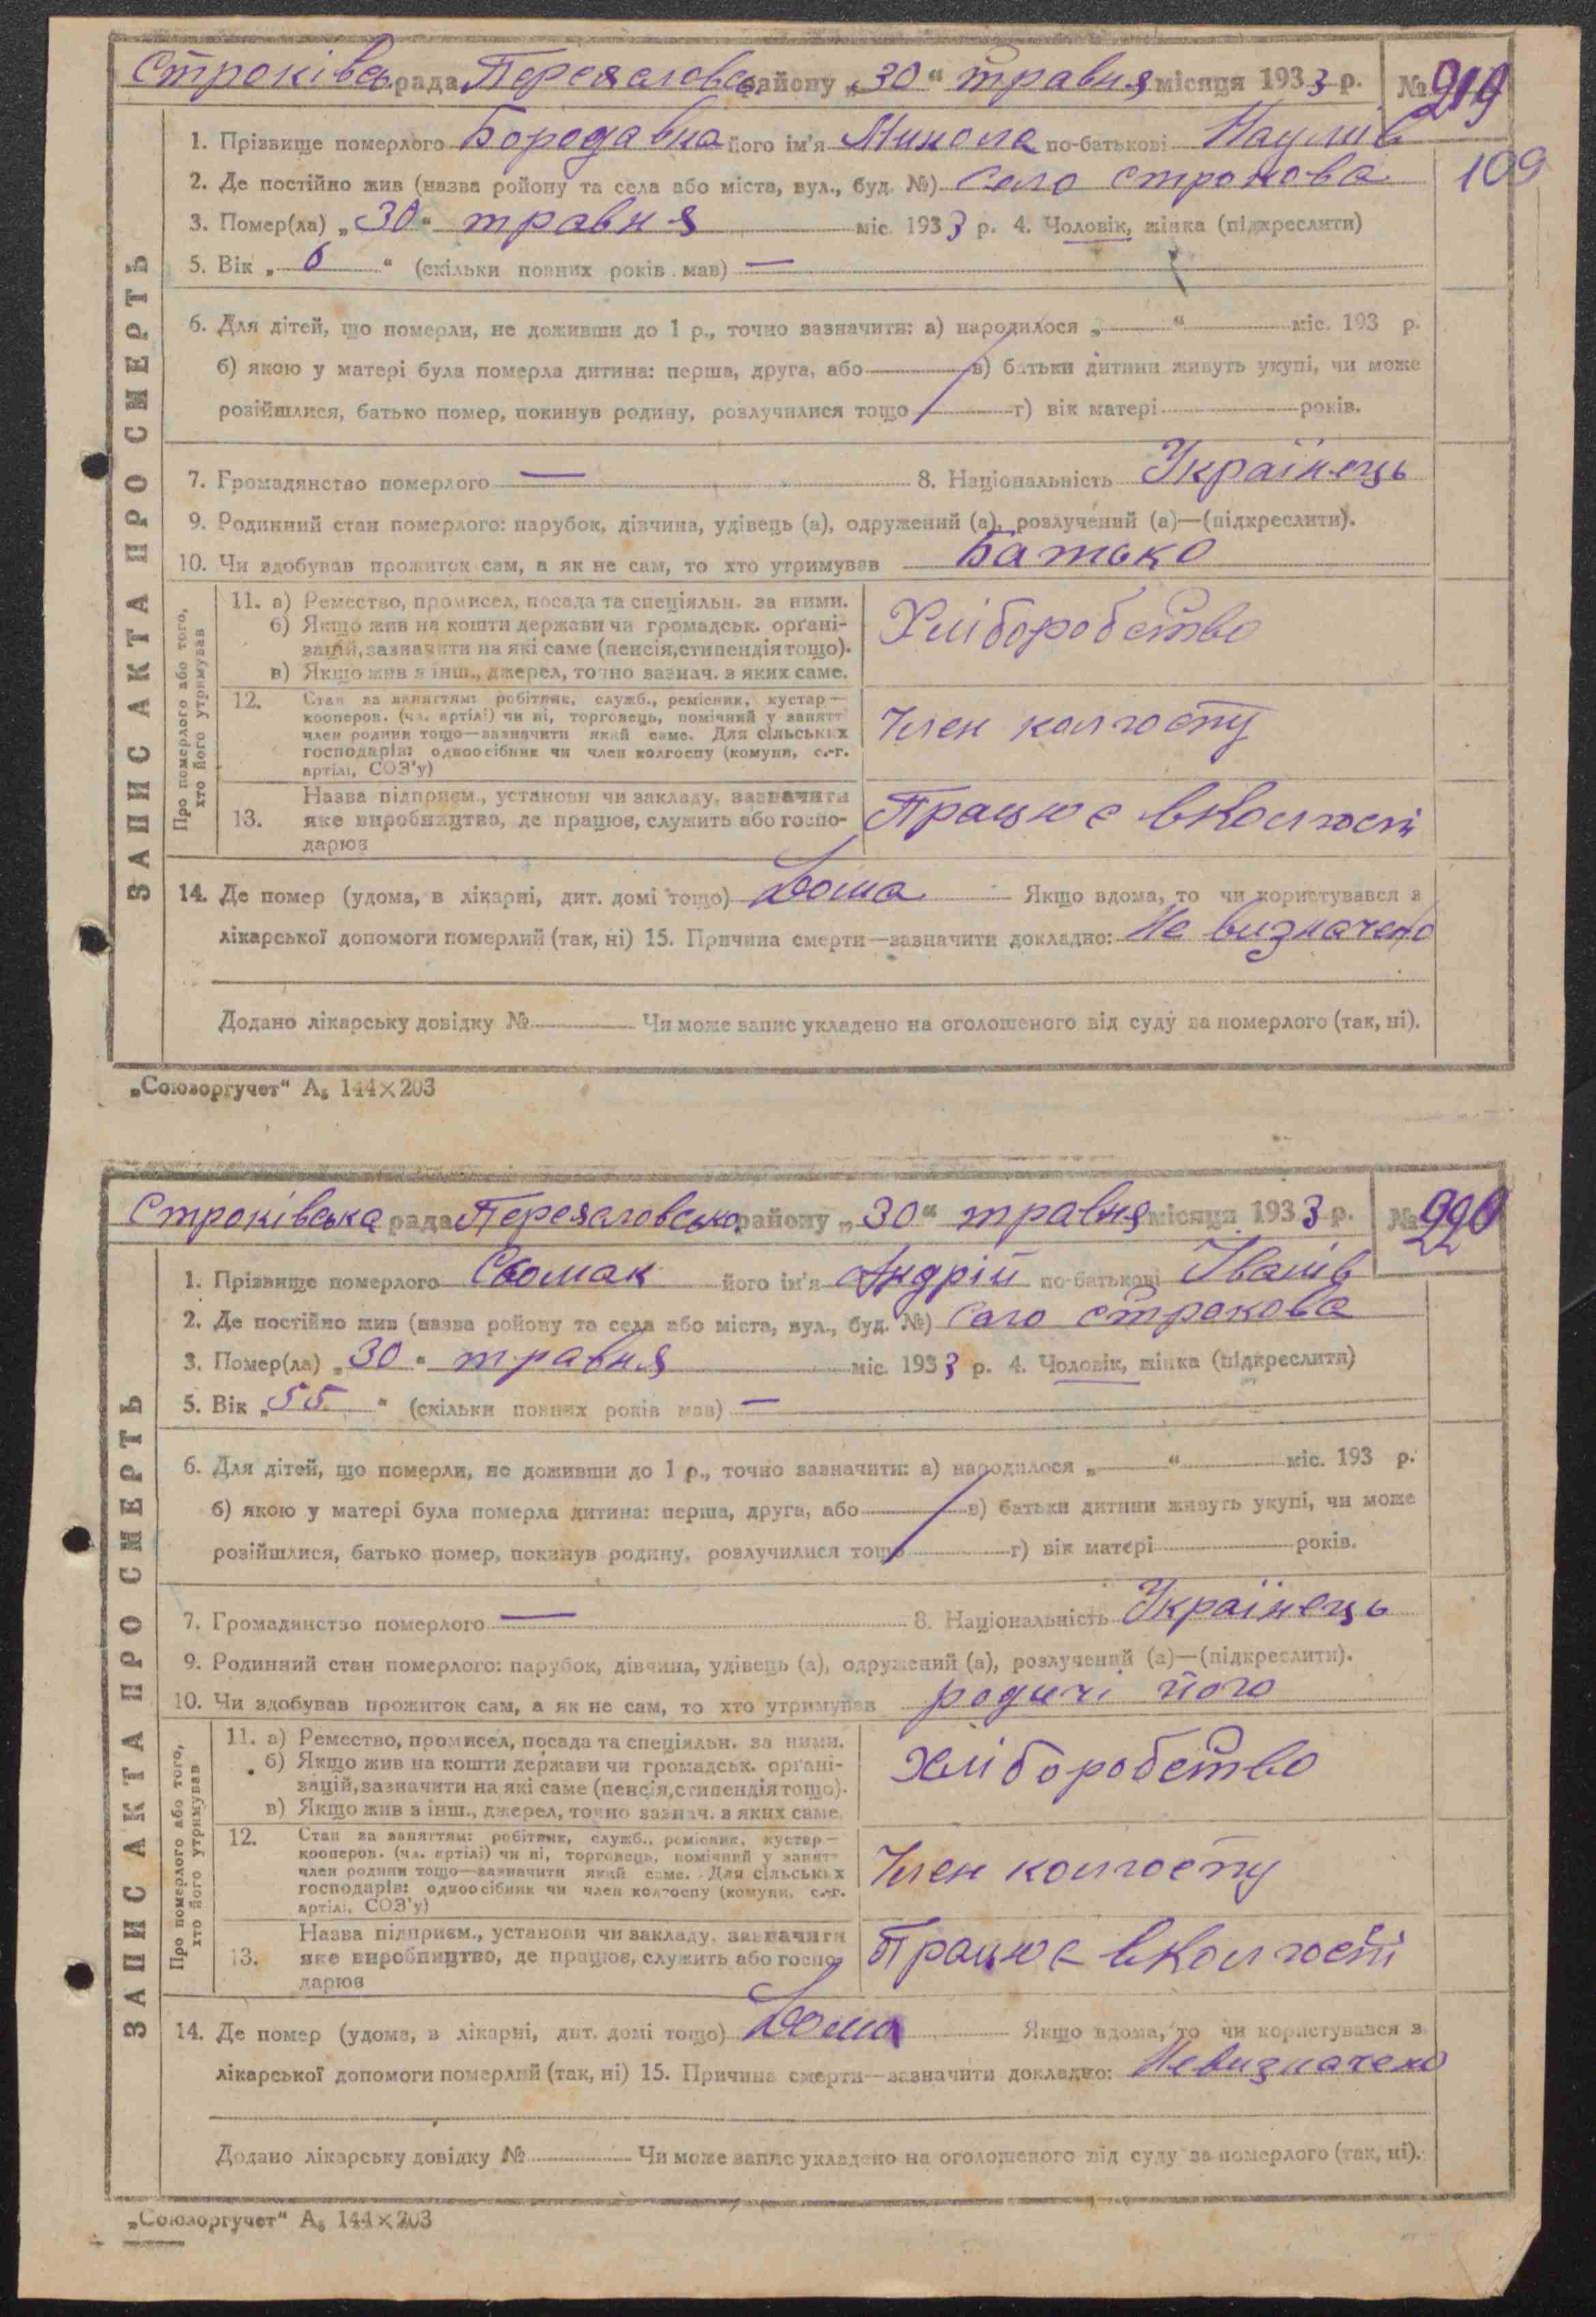 Строківсь. рада Переяславсь. району „30“ травня місяця 1933 р. № 219
109
1. Прізвище померлого Бородавка його ім'я Микола по-батькові
2. Де постійно жив (назва ройону та села або міста, вул., буд. №) Село Строкова
3. Помер(ла) „30“ травня міс. 1933 р. 4. Чоловік, жінка (підкреслити)
5. Вік „6“ (скільки повних років мав) —
6. Для дітей, що померли, не доживши до 1 р., точно зазначити: а) народилося „ “ міс. 193 р.
б) якою у матері була померла дитина: перша, друга, або в) батьки дитини живуть укупі, чи може
розійшлися, батько помер, покинув родину, розлучилися тощо г) вік матері років.
7. Громадянство померлого — 8. Національність Українець
9. Родинний стан померлого: парубок, дівчина, удівець (а), одружений (а), розлучений (а)—(підкреслити).
10. Чи здобував прожиток сам, а як не сам, то хто утримував Батько
ЗАПИС АКТА ПРО СМЕРТЬ
Про померлого або того,
хто його утримував
11. а) Ремество, промисел, посада та спеціяльн. за ними.
б) Якщо жив на кошти держави чи громадськ. органі-
зацій, зазначити на які саме (пенсія, стипендія тощо).
в) Якщо жив з інш., джерел, точно зазнач. з яких саме.
Хліборобство
12. Стан за заняттям: робітник, служб., ремісник, кустар—
кооперов. (чл. артілі) чи ні, торговець, помічний у занятт
член родини тощо—зазначити який саме. Для сільських
господарів: одноосібник чи член колгоспу (комуни, с.-г.
артілі, СОЗ'у)
Член колгоспу
13. Назва підприєм., установи чи закладу, зазначити
яке виробництво, де працює, служить або госпо-
дарює
Працює вколгоспі
14. Де помер (удома, в лікарні, дит. домі тощо) Дома Якщо вдома, то чи користувався з
лікарської допомоги померлий (так, ні) 15. Причина смерти—зазначити докладно: Не визначено
Додано лікарську довідку № Чи може запис укладено на оголошеного від суду за померлого (так, ні).
„Союзоргучет“ А₅ 144×203
Строківська рада Переяславсько району „30“ травня місяця 1933 р. № 220
1. Прізвище померлого його ім'я Андрій по-батькові Іванів
2. Де постійно жив (назва ройону та села або міста, вул., буд. №) Село Строкова
3. Помер(ла) „30“ травня міс. 1933 р. 4. Чоловік, жінка (підкреслити)
5. Вік „55“ (скільки повних років мав) —
6. Для дітей, що померли, не доживши до 1 р., точно зазначити: а) народилося „ “ міс. 193 р.
б) якою у матері була померла дитина: перша, друга, або в) батьки дитини живуть укупі, чи може
розійшлися, батько помер, покинув родину, розлучилися тощо г) вік матері років.
7. Громадянство померлого — 8. Національність Українець
9. Родинний стан померлого: парубок, дівчина, удівець (а), одружений (а), розлучений (а)—(підкреслити).
10. Чи здобував прожиток сам, а як не сам, то хто утримував родичі його
ЗАПИС АКТА ПРО СМЕРТЬ
Про померлого або того,
хто його утримував
11. а) Ремество, промисел, посада та спеціяльн. за ними.
б) Якщо жив на кошти держави чи громадськ. органі-
зацій, зазначити на які саме (пенсія, стипендія тощо).
в) Якщо жив з інш., джерел, точно зазнач. з яких саме.
Хліборобство
12. Стан за заняттям: робітник, служб., ремісник, кустар—
кооперов. (чл. артілі) чи ні, торговець, помічний у занятт
член родини тощо—зазначити який саме. Для сільських
господарів: одноосібник чи член колгоспу (комуни, с.-г.
артілі, СОЗ'у)
Член колгоспу
13. Назва підприєм., установи чи закладу, зазначити
яке виробництво, де працює, служить або госпо-
дарює
Працює вколгоспі
14. Де помер (удома, в лікарні, дит. домі тощо) Дома Якщо вдома, то чи користувався з
лікарської допомоги померлий (так, ні) 15. Причина смерти—зазначити докладно: Невизначено
Додано лікарську довідку № Чи може запис укладено на оголошеного від суду за померлого (так, ні).
„Союзоргучет“ А₅ 144×203